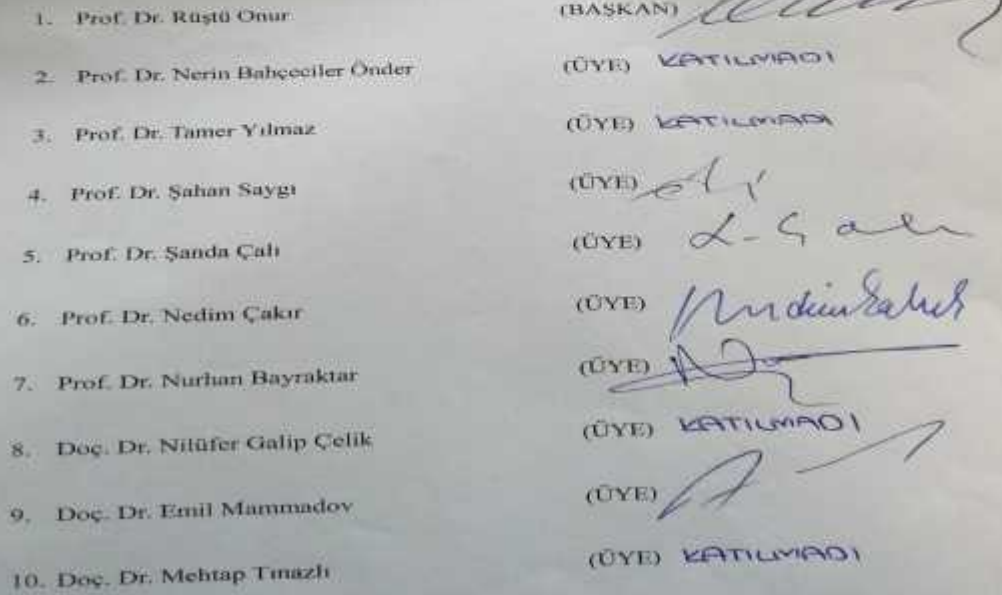 1. Prof. Dr. Rüştü Onur (BAŞKAN)
2. Prof. Dr. Nerin Bahçeciler Önder (ÜYE) KATILMADI
3. Prof. Dr. Tamer Yılmaz (ÜYE) KATILMADI
4. Prof. Dr. Şahan Saygı (ÜYE)
5. Prof. Dr. Şanda Çalı (ÜYE)
6. Prof. Dr. Nedim Çakır (ÜYE)
7. Prof. Dr. Nurhan Bayraktar (ÜYE)
8. Doç. Dr. Nilüfer Galip Çelik (ÜYE) KATILMADI
9. Doç. Dr. Emil Mammadov (ÜYE)
10. Doç. Dr. Mehtap Tınazlı (ÜYE) KATILMADI